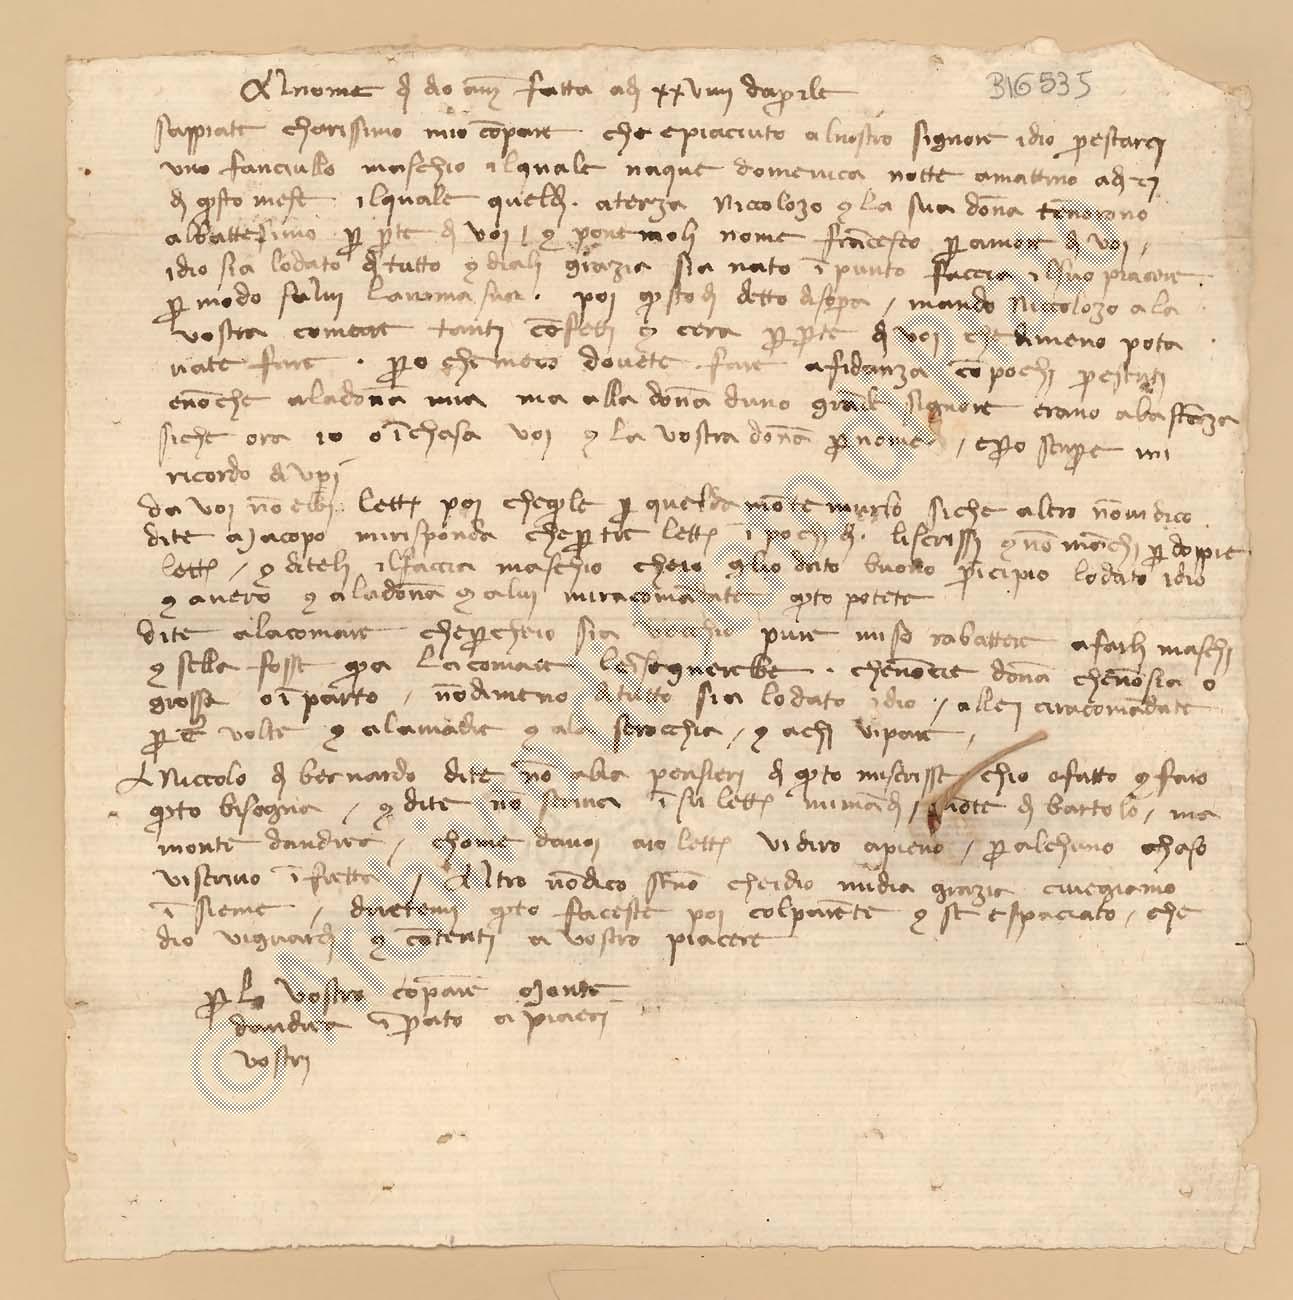 Al nome di dio am̄ fatta adi xxviiii daprile
B16 535
sappiate charissimo mio cōpare che epiaciuto alnostro signore idio prestarci
uno fanciullo maschio ilquale naque domenica notte amattino adi
di q̄sto mese ilquale queldi aterza Niccolozo e la sua dōna tēnorono
albattesimo p̄ p̄te di voi e poneuoli nome frācesco p̄ amore di voi
idio sia lodato di tutto e diali grazia sia nato ī punto faccia ilsuo piacere
p̄ modo salui lanima sua poi q̄sto di detto disopra mando Niccolozo ala
vostra comare tanti cōfetti e cera p̄ p̄te di voi che dimeno pota
uate fare p̄o che meco dovete fare afidanza cō pochi presenti
enōche aladōna mia ma alla dōna duno grāde signore erano abastāza
siche ora io o ī chasa voi e la vostra dōna p̄ nome epo senpre mi
ricordo di voi
da voi nō ebbi lett̄ poi cheq̄le p̄ quelda mōte murlo siche altro nōuidico
dite a Jacopo mirisponda chep̄ tre lett̄ ī pochi di liscrissi e nō māchi p̄ doppie
lett̄ e diteli ilfaccia maschio cheio glio dato buono pricipio lodato idio
e avero e aladōna e alui miracomādate q̄to potete
dite alacomare chep̄cheio sia vecchio pure miso rabattere afarli maschi
e sella fosse q̄a la comare lansegnerebbe chenōcie dōna chenōsia o
grossa o ī parto nōdimeno di tutto sia lodato idio allei ciracomādate
p̄ C volte e alamadre e ala serocchia e achi vipare
A Niccolo di bernardo dite nō abia pensieri di q̄to miscrisse chio ofatto e faro
q̄to bisogna e dite nō scriua ī su lett̄ mimādi mōte di bartolo ma
monte dandrea chome davoi aro lett̄ vidiro apieno p̄ alchuno chaso
viscriuo ī fretta Altro nōdico senō cheidio midia grazia civegiamo
ī sieme diretemi q̄to faceste poi colparēte e se espaciato che
dio viguardi e cōtenti a vostro piacere
p̄ lo vostro cōpare Monte
dandrea ī prato a piaceri
vostri